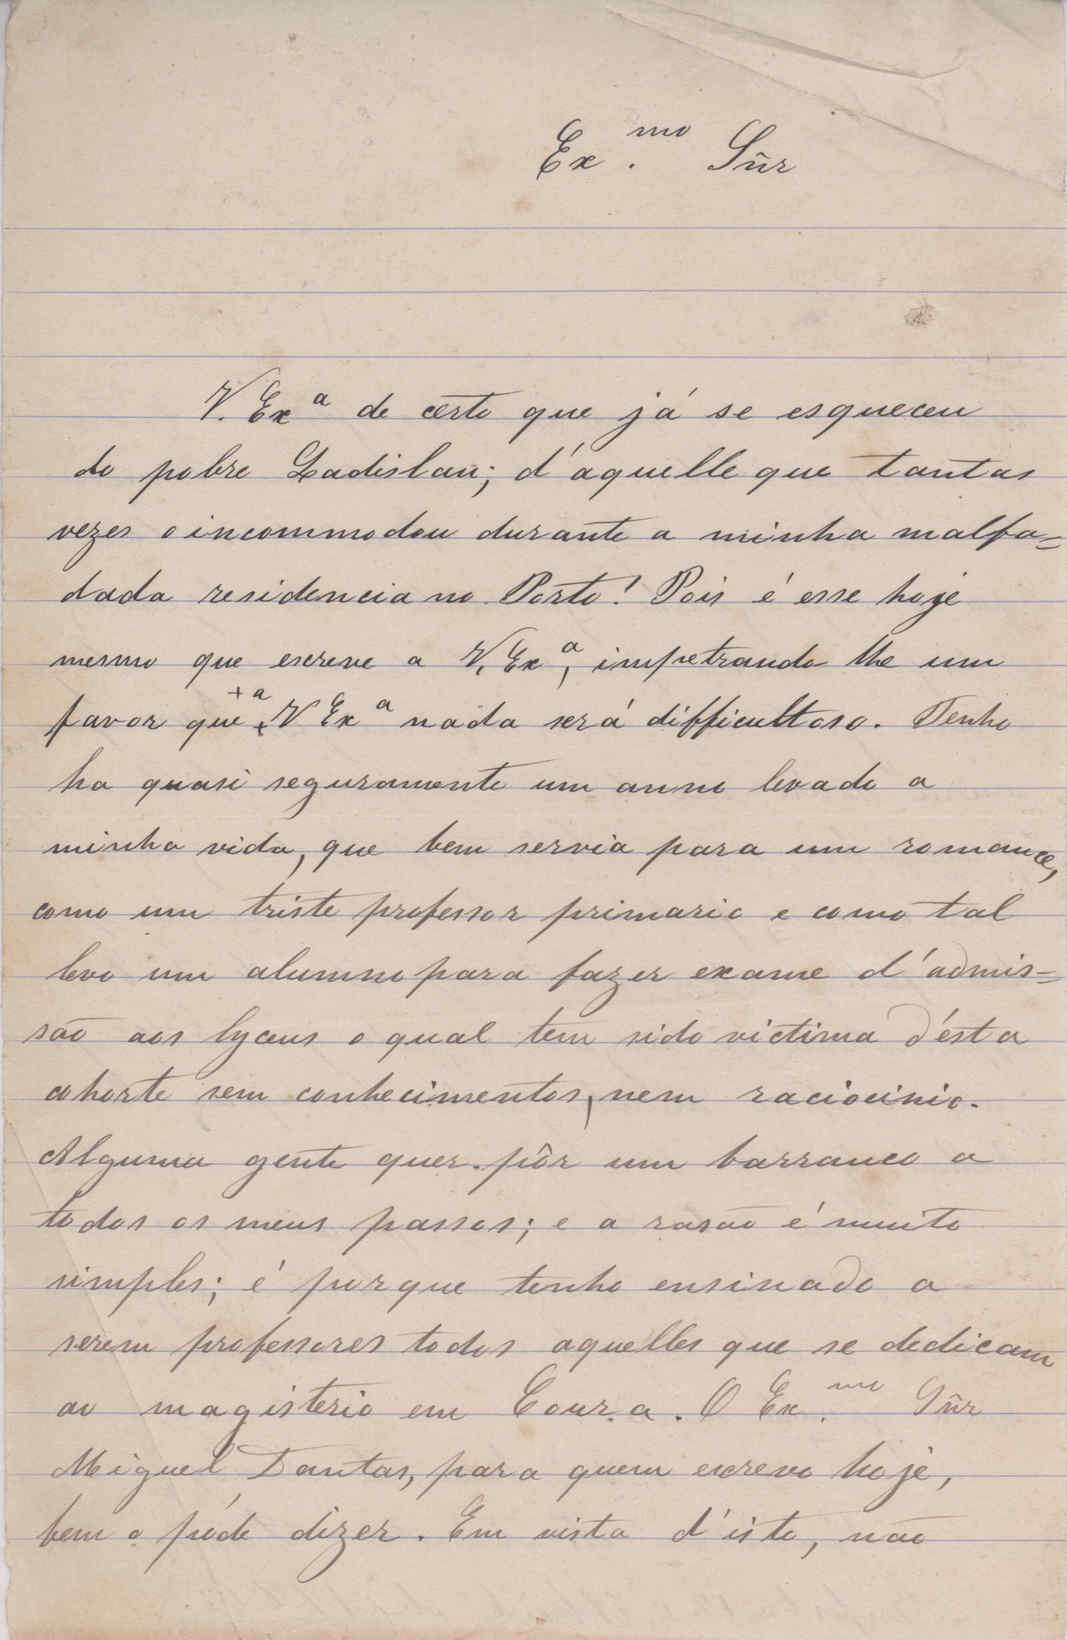 Ex.mo Sñr
V. Exa de certo que já se esqueceu
do pobre Ladislau; d'aquelle que tantas
vezes o incommodou durante a minha malfa=
dada residencia no Porto! Pois é esse hoje
mesmo que escreve a V. Exa, impetrando lhe um
favor que +a V Exa nada será difficultoso. Tenho
ha quasi seguramente um anno levado a
minha vida, que bem servia para um romance,
como um triste professor primario e como tal
levo um alumno para fazer exame d'admis=
são aos lyceus o qual tem sido victima d'ésta
cohorte sem conhecimentos, nem raciocinio.
Alguma gente quer pôr um barranco a
todos os meus passos; e a rasão é muito
simples; é porque tenho ensinado a
serem professores todos aquelles que se dedicam
ao magisterio em Coura. O Ex.mo Sñr
Miguel Dantas, para quem escrevo hoje,
bem o póde dizer. Em vista d'isto, não